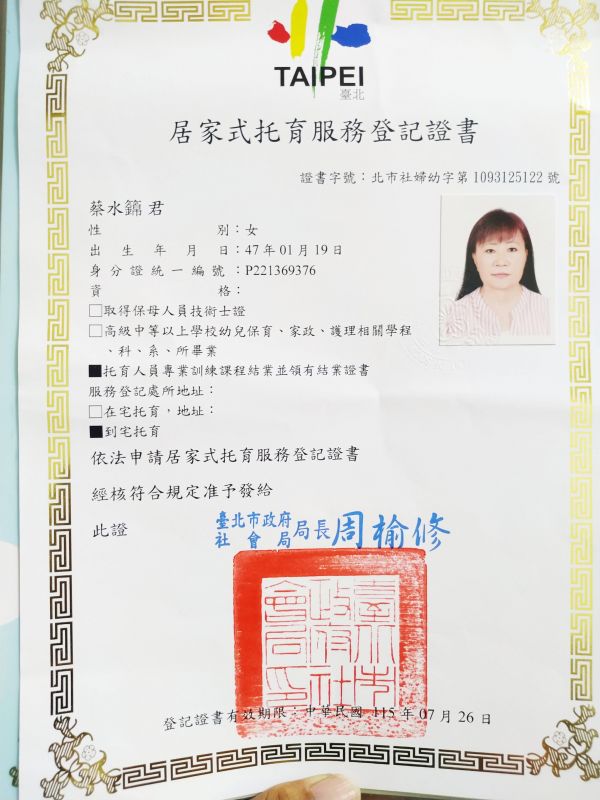 TAIPEI
臺北
居家式托育服務登記證書
證書字號：北市社婦幼字第1093125122號
蔡水錦 君
性別：女
出生年月日：47年01月19日
身分證統一編號：P221369376
資格：
□取得保母人員技術士證
□高級中等以上學校幼兒保育、家政、護理相關學程
、科、系、所畢業
■托育人員專業訓練課程結業並領有結業證書
服務登記處所地址：
□在宅托育，地址：
■到宅托育
依法申請居家式托育服務登記證書
經核符合規定准予發給
此證
臺北市政府
社會局
局長周榆修
臺北市
政府社
會局印
登記證書有效期限：中華民國 115年07月26日